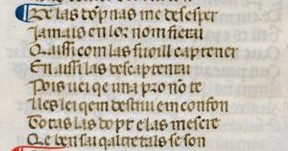 De las dopnas me desesper
Jamais en lor nom fierai
Qaissi com las suoill captener
En aissi las descaptenrai
Pois uei qe una pro no te
Ues lei qem destrui em confon
Totas las dopt e las mescre
Qe ben sai qaltretals se son